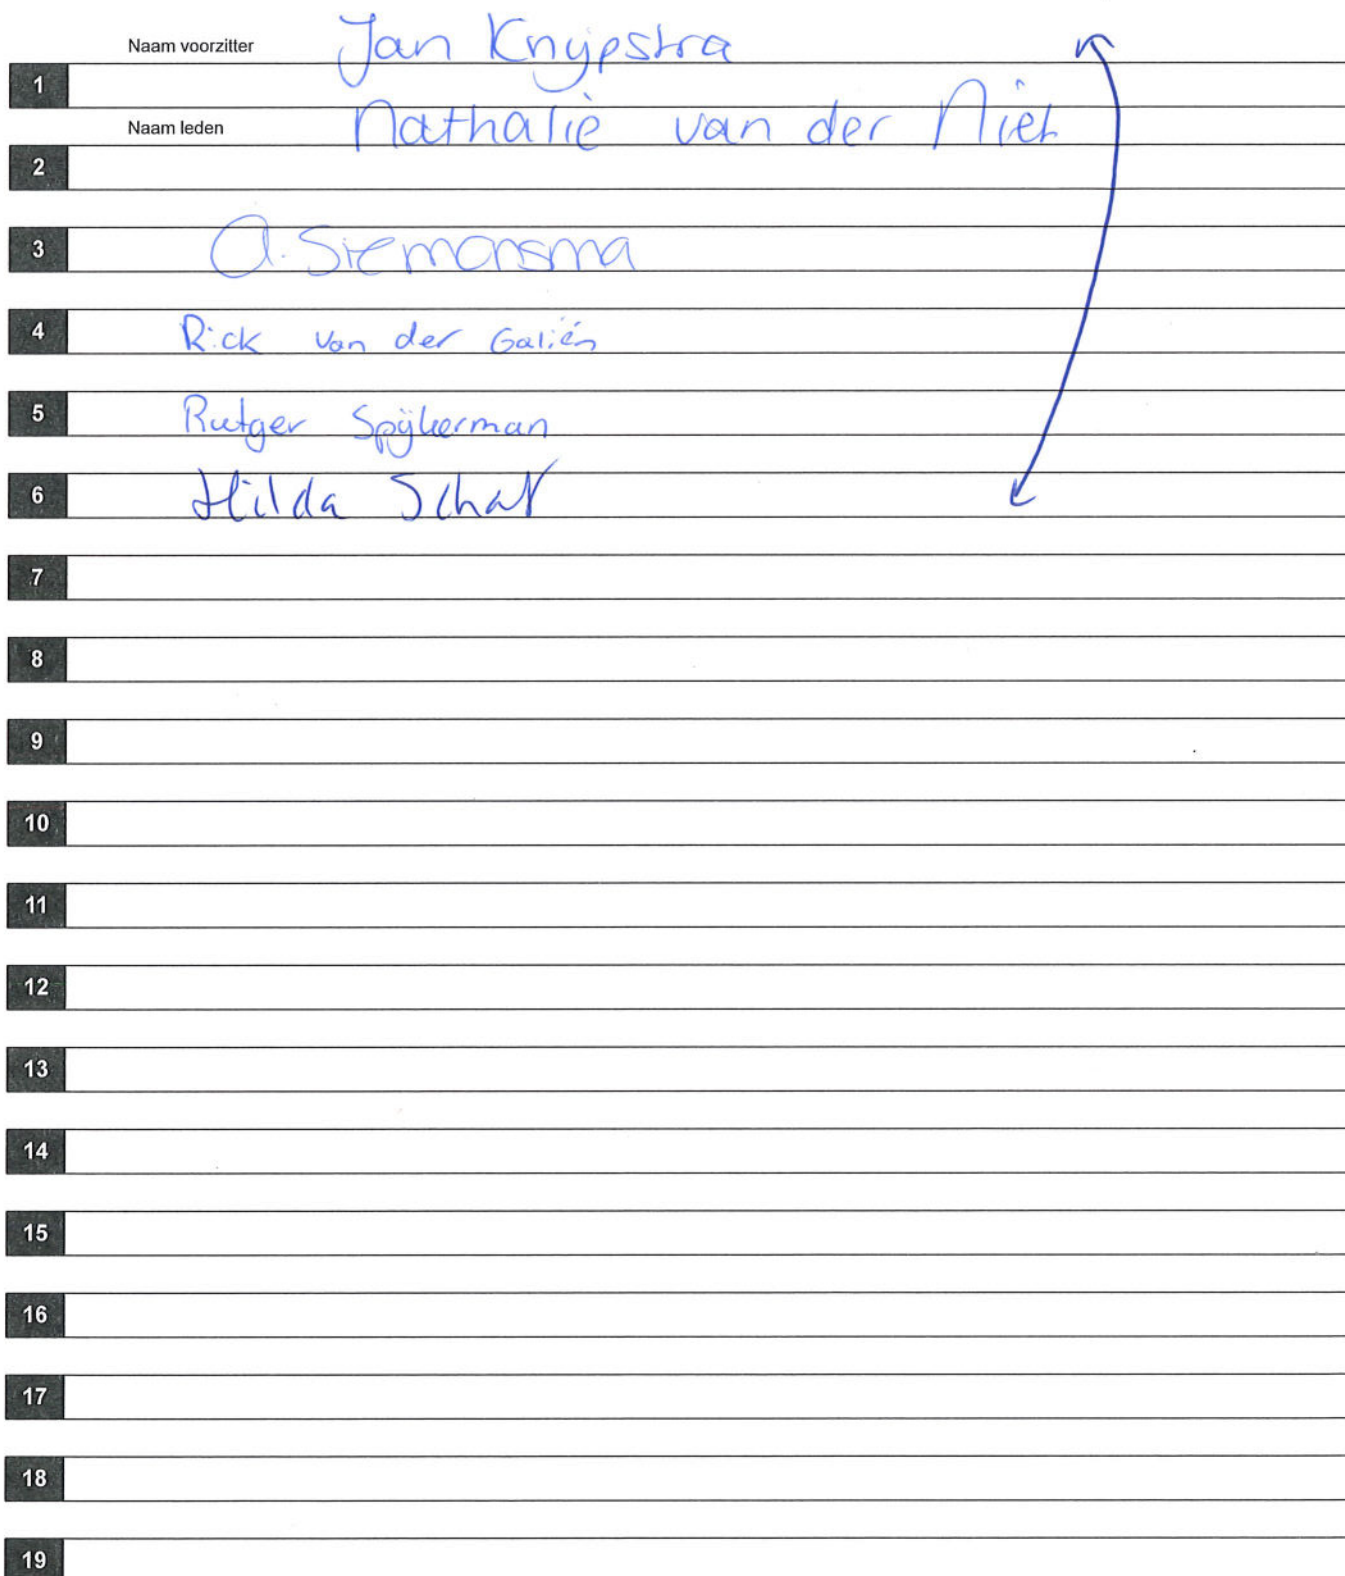 Naam voorzitter Jan Knijpstra
1
Naam leden Nathalie van der Niet
2
3 A. Siemonsma
4 Rick van der Galiën
5 Rutger Spijkerman
6 Hilda Schaf
7
8
9
10
11
12
13
14
15
16
17
18
19